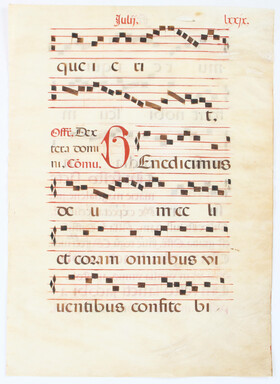 Julij. lxxix.
que i e ri
t.
Offe. Dex
tera domi
ni. Cōmu. BEnedicimus
de u m cc li
et coram omnibus vi
uentibus confite bi